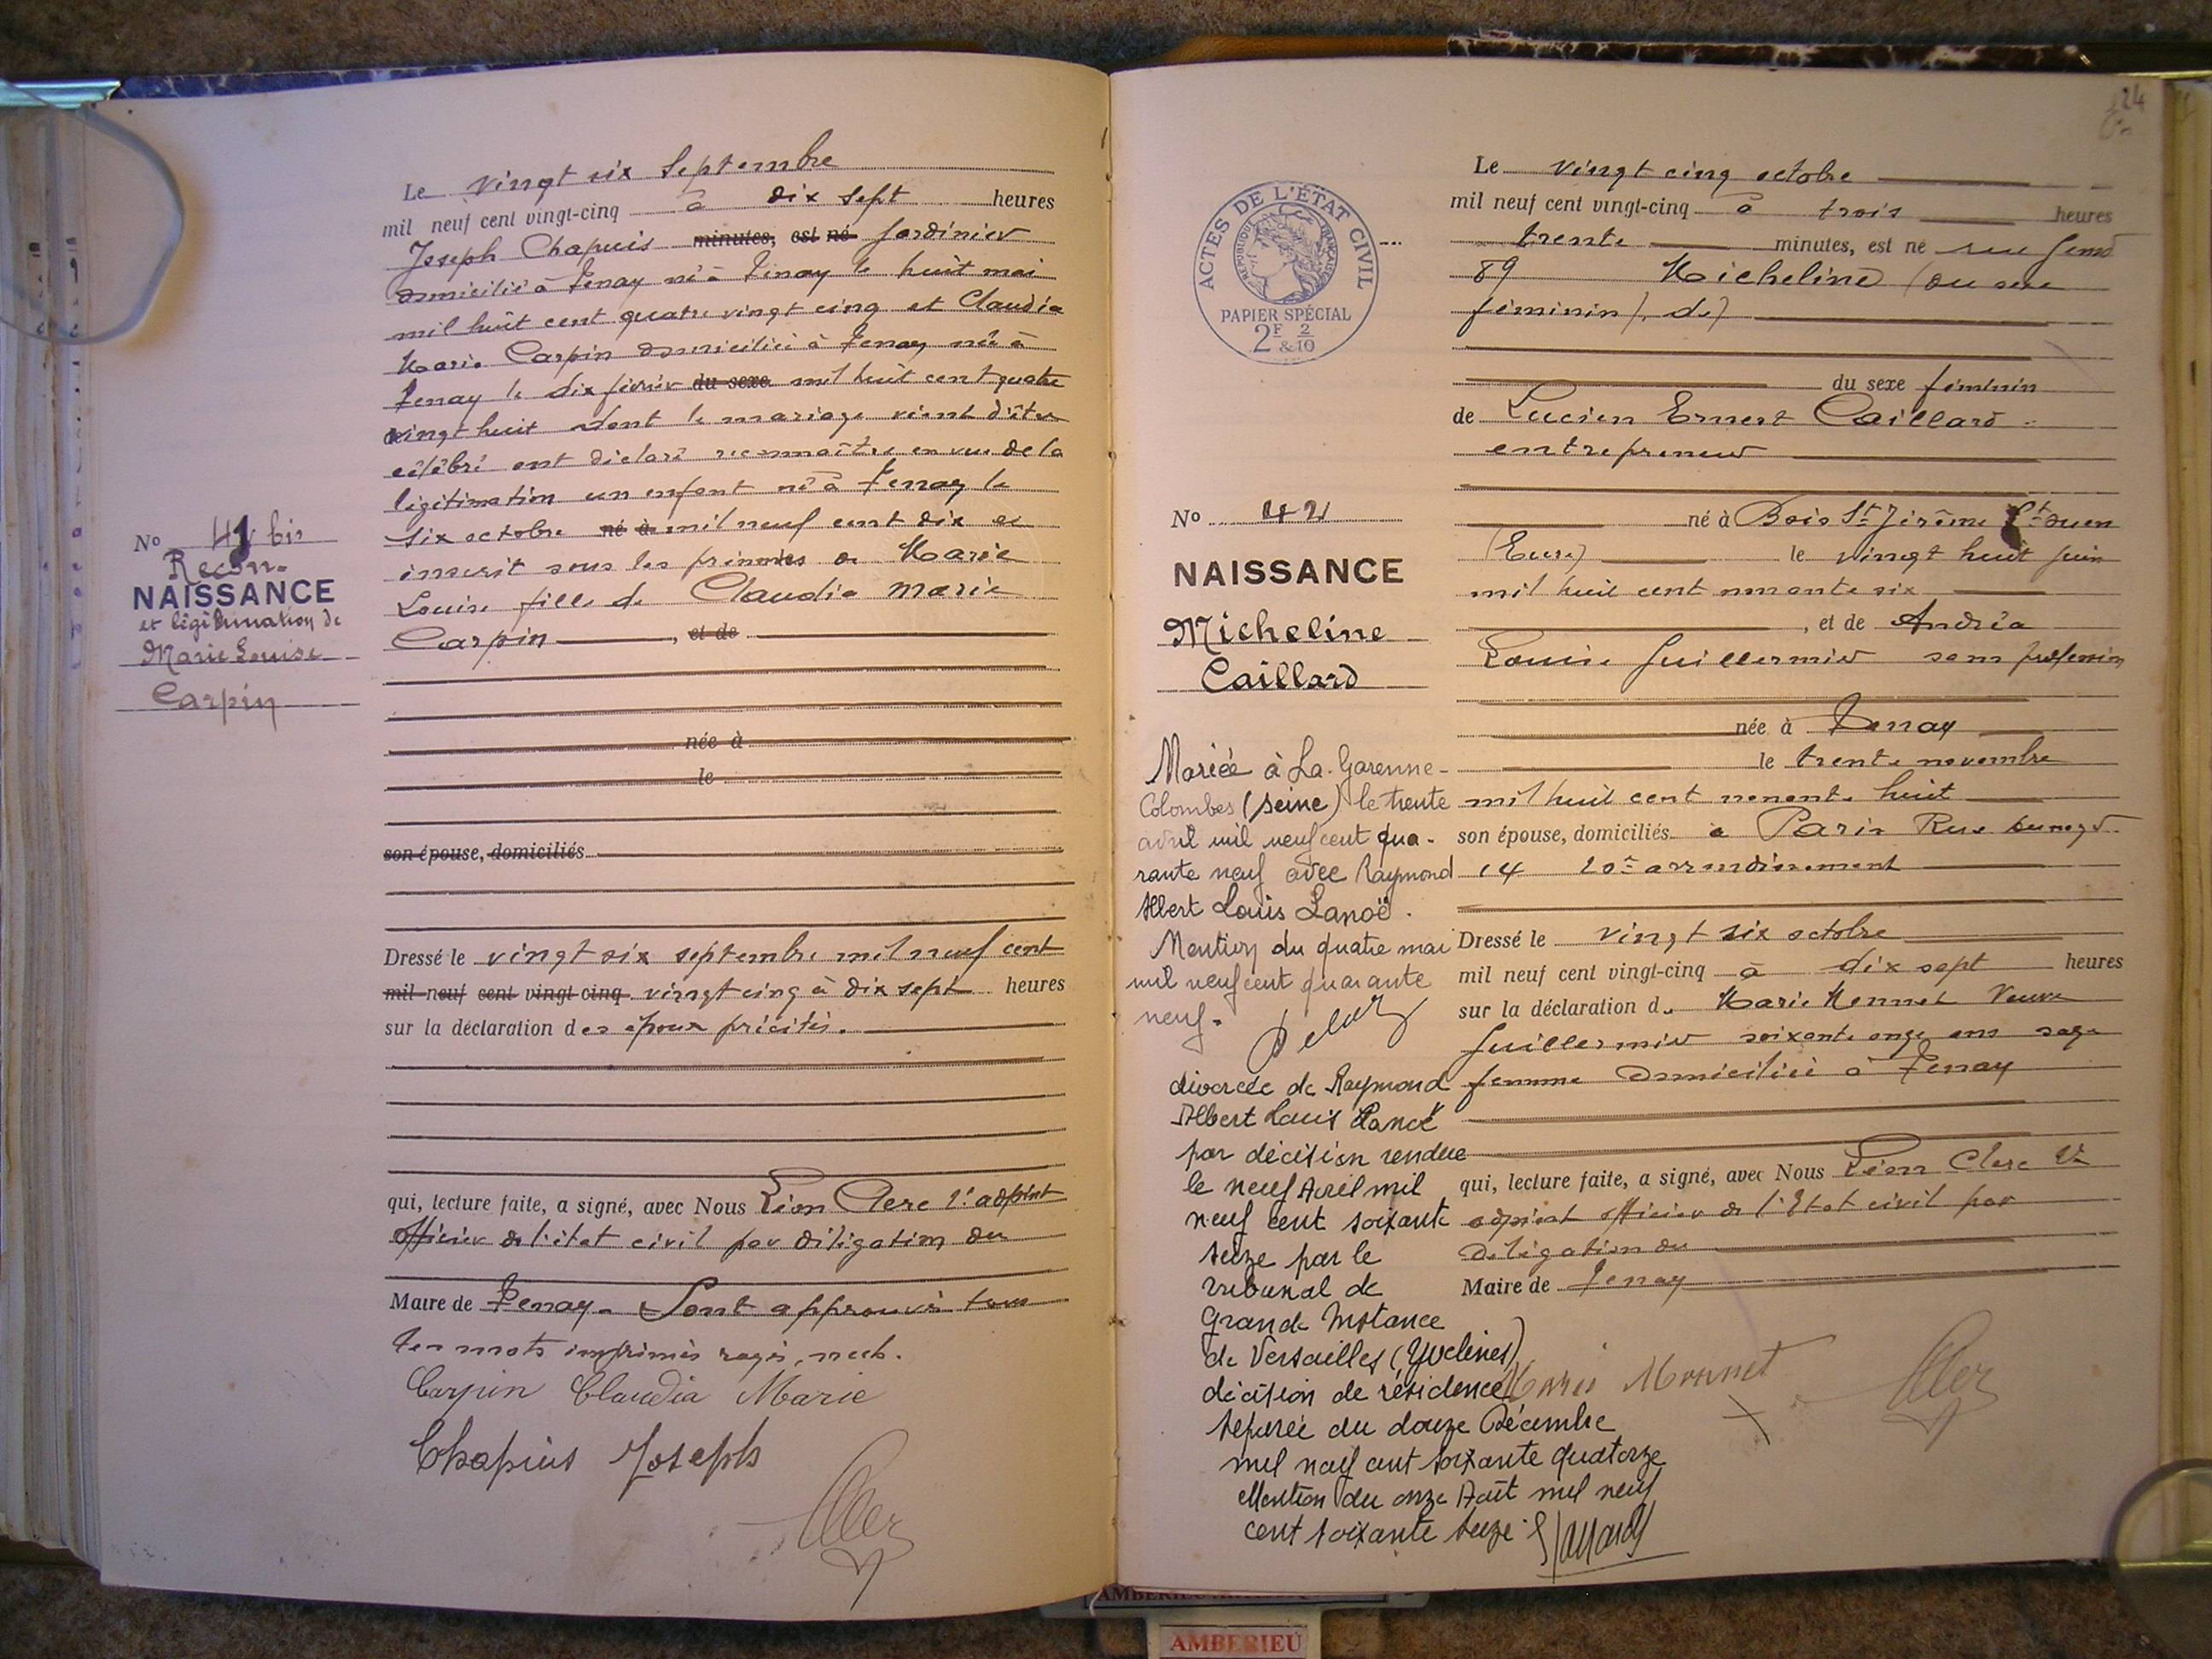 Le vingt six Septembre
mil neuf cent vingt-cinq à dix sept heures
Joseph Chapuis minutes, est né jardinier
domicilié à Tenay né à Tenay le huit mai
mil huit cent quatre vingt cinq et Claudia
Marie Carpin domiciliée à Tenay née à
Tenay le dix février du sexe mil huit cent quatre
vingt huit dont le mariage vient d'être
célébré ont déclaré reconnaître en vue de la
légitimation un enfant né à Tenay le
six octobre né à mil neuf cent dix et
inscrit sous les prénoms de Marie
Louise fille de Claudia Marie
Carpin, et de
née à
le
son épouse, domiciliés
Dressé le vingt six septembre mil neuf cent
mil neuf cent vingt cinq vingt cinq à dix sept heures
sur la déclaration des époux précités.
qui, lecture faite, a signé, avec Nous Léon Clerc 2e adjoint
officier de l'état civil par délégation du
Maire de Tenay. Sont approuvés tous
les mots imprimés rayés
Carpin Claudia Marie
Chapuis Joseph
No 41 bis
Recon-
NAISSANCE
et légitimation de
Marie Louise
Carpin
24
ACTES DE L'ÉTAT CIVIL
RÉPUBLIQUE FRANÇAISE
PAPIER SPÉCIAL
2F 2/10
&
No 42
NAISSANCE
Micheline
Caillard
Mariée à La Garenne-
Colombes (Seine) le trente
avril mil neuf cent qua-
rante neuf avec Raymond
Albert Louis Lanoë.
Mention du quatre mai
mil neuf cent quarante
neuf.
divorcée de Raymond
Albert Louis Lanoë
par décision rendue
le neuf Avril mil
neuf cent soixante
seize par le
tribunal de
Grande Instance
de Versailles (Yvelines)
décision de résidence
séparée du douze Décembre
mil neuf cent soixante quatorze
Mention du onze Août mil neuf
cent soixante seize.
Le vingt cinq octobre
mil neuf cent vingt-cinq à trois heures
trente minutes, est né
89 Micheline (du sexe
féminin), de)
du sexe féminin
de Lucien Ernest Caillard
entrepreneur
né à Bois St Jérôme St Ouen
(Eure) le vingt huit juin
mil huit cent nonante six
, et de Andréa
Louise Guillermier sans profession
née à Tenay
le trente novembre
mil huit cent nonante huit
son épouse, domiciliés à Paris Rue
14 20e arrondissement
Dressé le vingt six octobre
mil neuf cent vingt-cinq à dix sept heures
sur la déclaration de Marie Monnet Veuve
Guillermier soixante onze ans sage
femme domiciliée à Tenay
qui, lecture faite, a signé, avec Nous Léon Clerc 2e
adjoint officier de l'Etat civil par
délégation du
Maire de Tenay
Marie Monnet
AMBERIEU